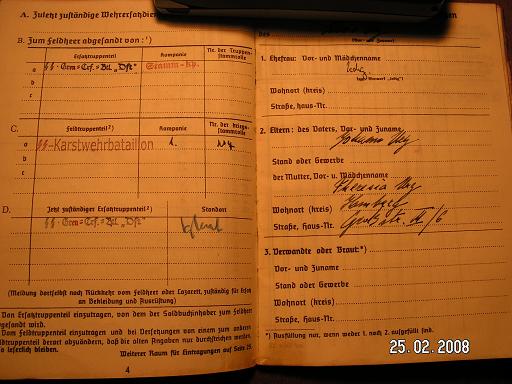 A. Zuletzt zuständige Wehrersatzdien
B. Zum Feldheer abgesandt von:¹)
Ersatztruppenteil
Kompanie
Nr. der Truppen-
stammrolle
a
ᛋᛋ-Gren=Ers.=Btl. „Ost“
Stamm-Kp.
b
c
C.
Feldtruppenteil²)
Kompanie
Nr. der Kriegs-
stammrolle
a
SS-Karstwehrbataillon
1.
b
c
D.
Jetzt zuständiger Ersatztruppenteil²)
Standort
ᛋᛋ-Gren=Ers.=Btl. „Ost“
(Meldung dortselbst nach Rückkehr vom Feldheer oder Lazarett, zuständig für Ersatz
an Bekleidung und Ausrüstung)
Von Ersatztruppenteil einzutragen, von dem der Soldbuchinhaber zum Feldheer
gesandt wird.
Vom Feldtruppenteil einzutragen und bei Versetzungen von einem zum anderen
Feldtruppenteil derart abzuändern, daß die alten Angaben nur durchstrichen werden,
so leserlich bleiben.
Weiterer Raum für Eintragungen auf Seite
4
des
1. Ehefrau: Vor- und Mädchenname
ledig
(ggf. Vermerk „ledig“)
Wohnort (Kreis)
Straße, Haus-Nr.
2. Eltern: des Vaters, Vor- und Zuname
Johann
Stand oder Gewerbe
der Mutter, Vor- u. Mädchenname
Theresia
Wohnort (Kreis)
Straße, Haus-Nr.
3. Verwandte oder Braut:*)
Vor- und Zuname
Stand oder Gewerbe
Wohnort (Kreis)
Straße, Haus-Nr.
*) Ausfüllung nur, wenn weder 1. noch 2. ausgefüllt sind.
25.02.2008